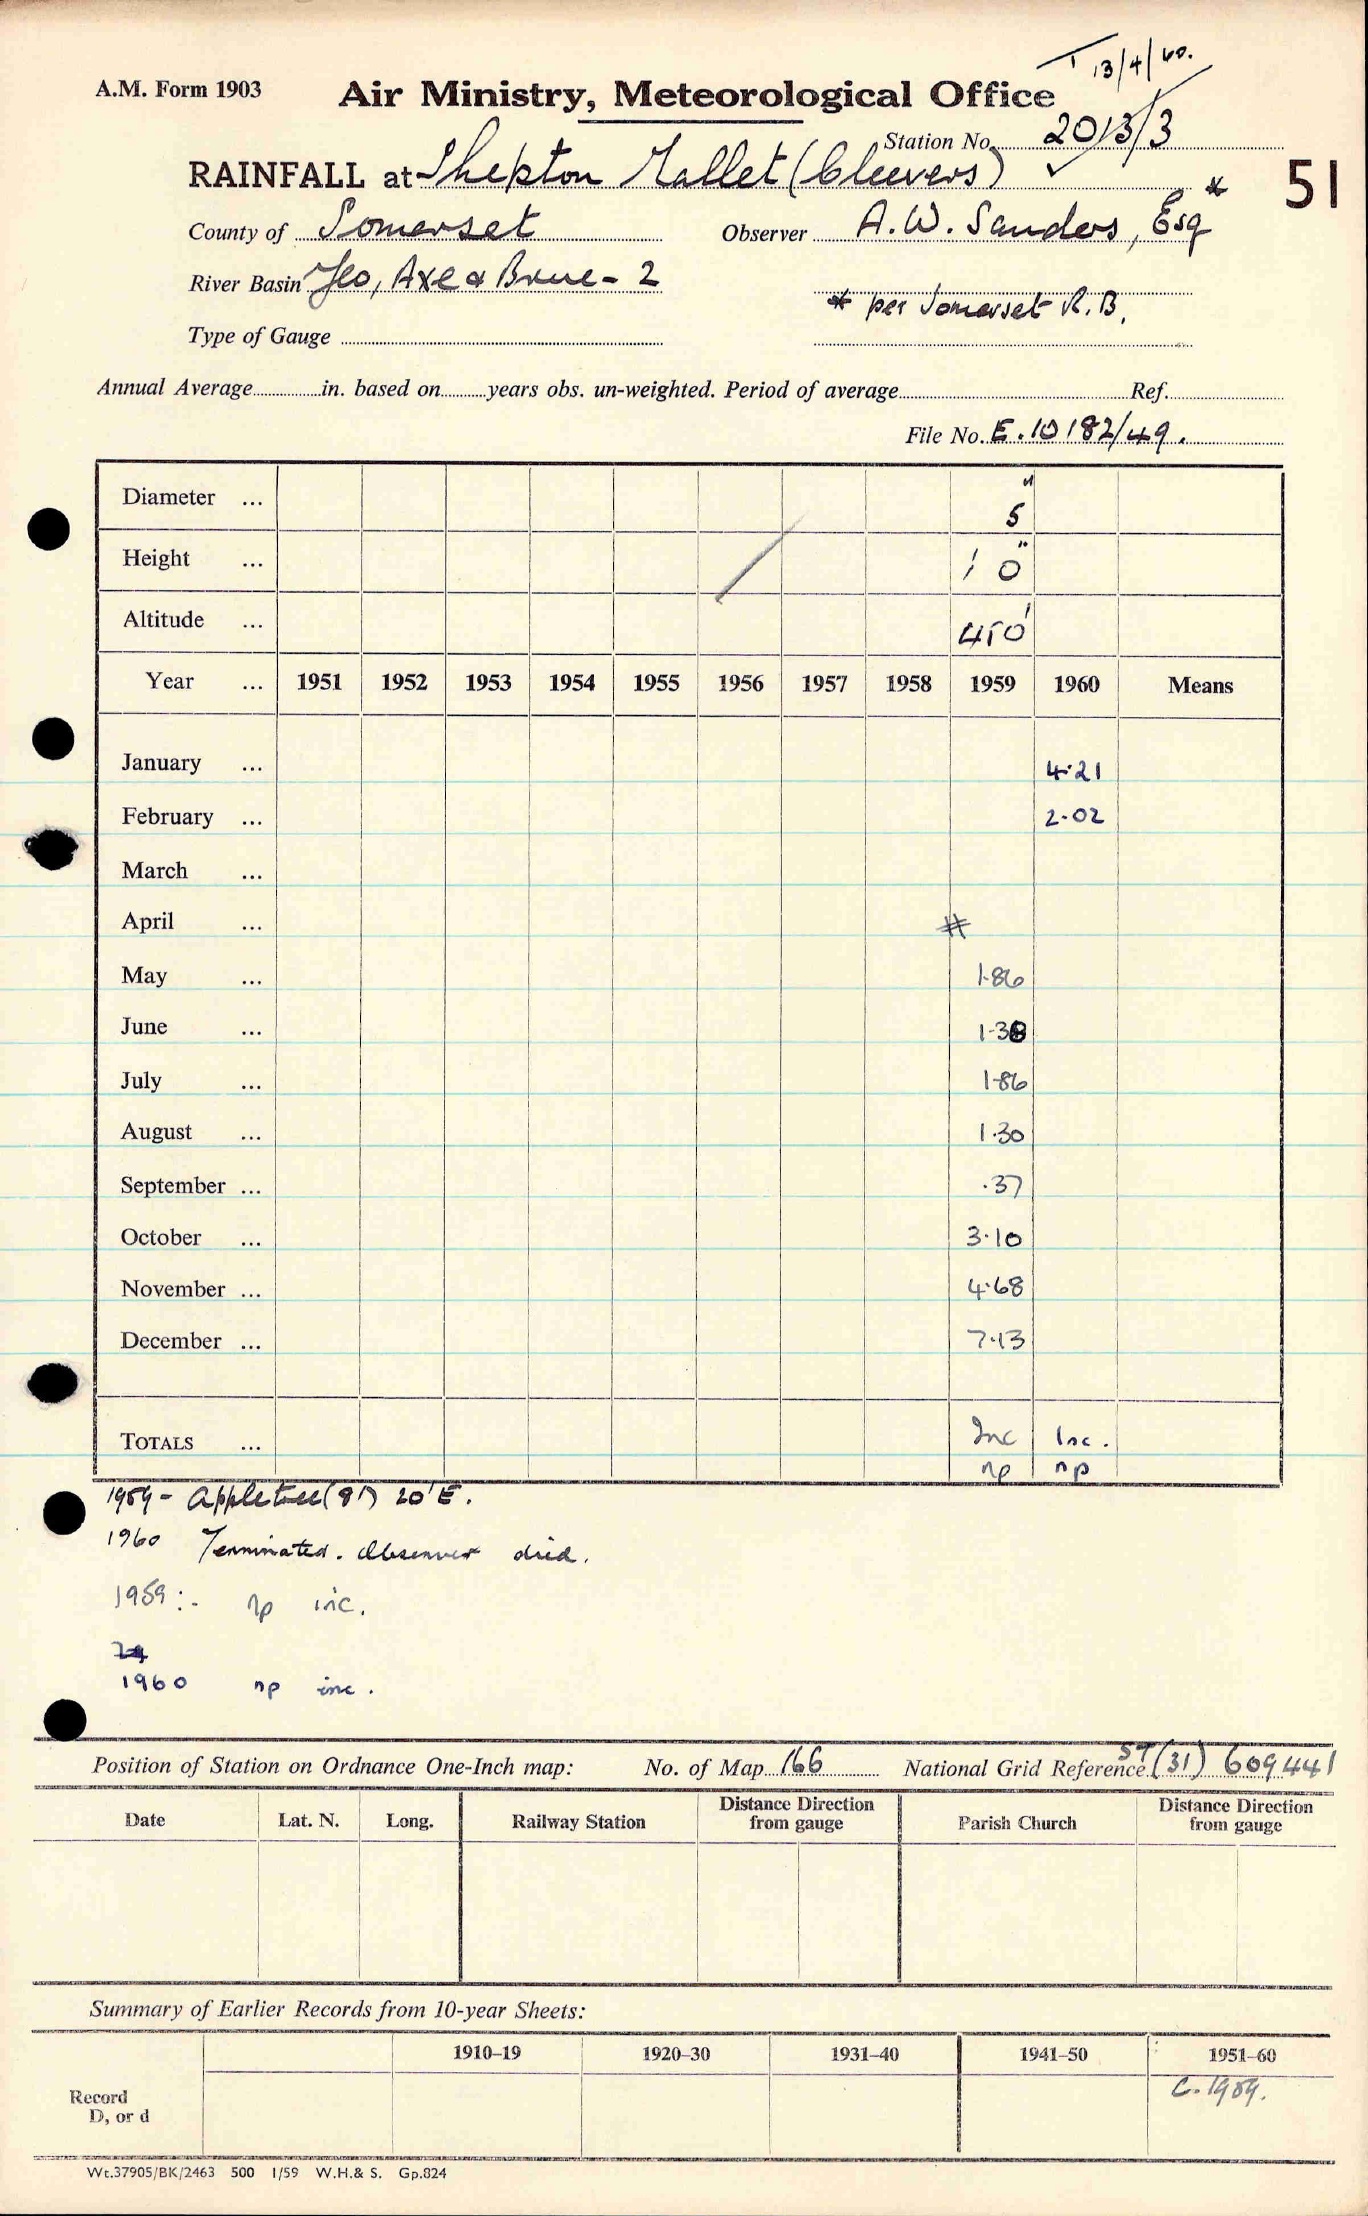 T 13/4/60.
A.M. Form 1903 Air Ministry, Meteorological Office
Station No. 2013/3
RAINFALL at Shepton Mallet (Cleevers) 51
County of Somerset Observer A.W. Sanders, Esq *
River Basin Yeo, Axe & Brue - 2 * per Somerset R.B.
Type of Gauge
Annual Average in. based on years obs. un-weighted. Period of average Ref.
File No. E.10182/49.
Diameter ... 5"
Height ... 1' 0"
Altitude ... 450'
Year ... 1951 1952 1953 1954 1955 1956 1957 1958 1959 1960 Means
January ... 4.21
February ... 2.02
March ...
April ... #
May ... 1.86
June ... 1.38
July ... 1.86
August ... 1.30
September ... .37
October ... 3.10
November ... 4.68
December ... 7.13
TOTALS ... Inc Inc.
np np
1959 - Appletree (9') 20' E.
1960 Terminated. Observer died.
1959:- np inc.
1960 np inc.
Position of Station on Ordnance One-Inch map: No. of Map 166 National Grid Reference ST (31) 609441
Date Lat. N. Long. Railway Station Distance Direction from gauge Parish Church Distance Direction from gauge
Summary of Earlier Records from 10-year Sheets:
1910–19 1920–30 1931–40 1941–50 1951–60
Record C. 1959.
D, or d
Wt.37905/BK/2463 500 1/59 W.H.& S. Gp.824